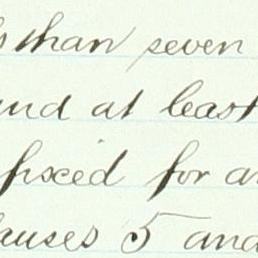 than seven
and at least
fixed for
clauses 5 and